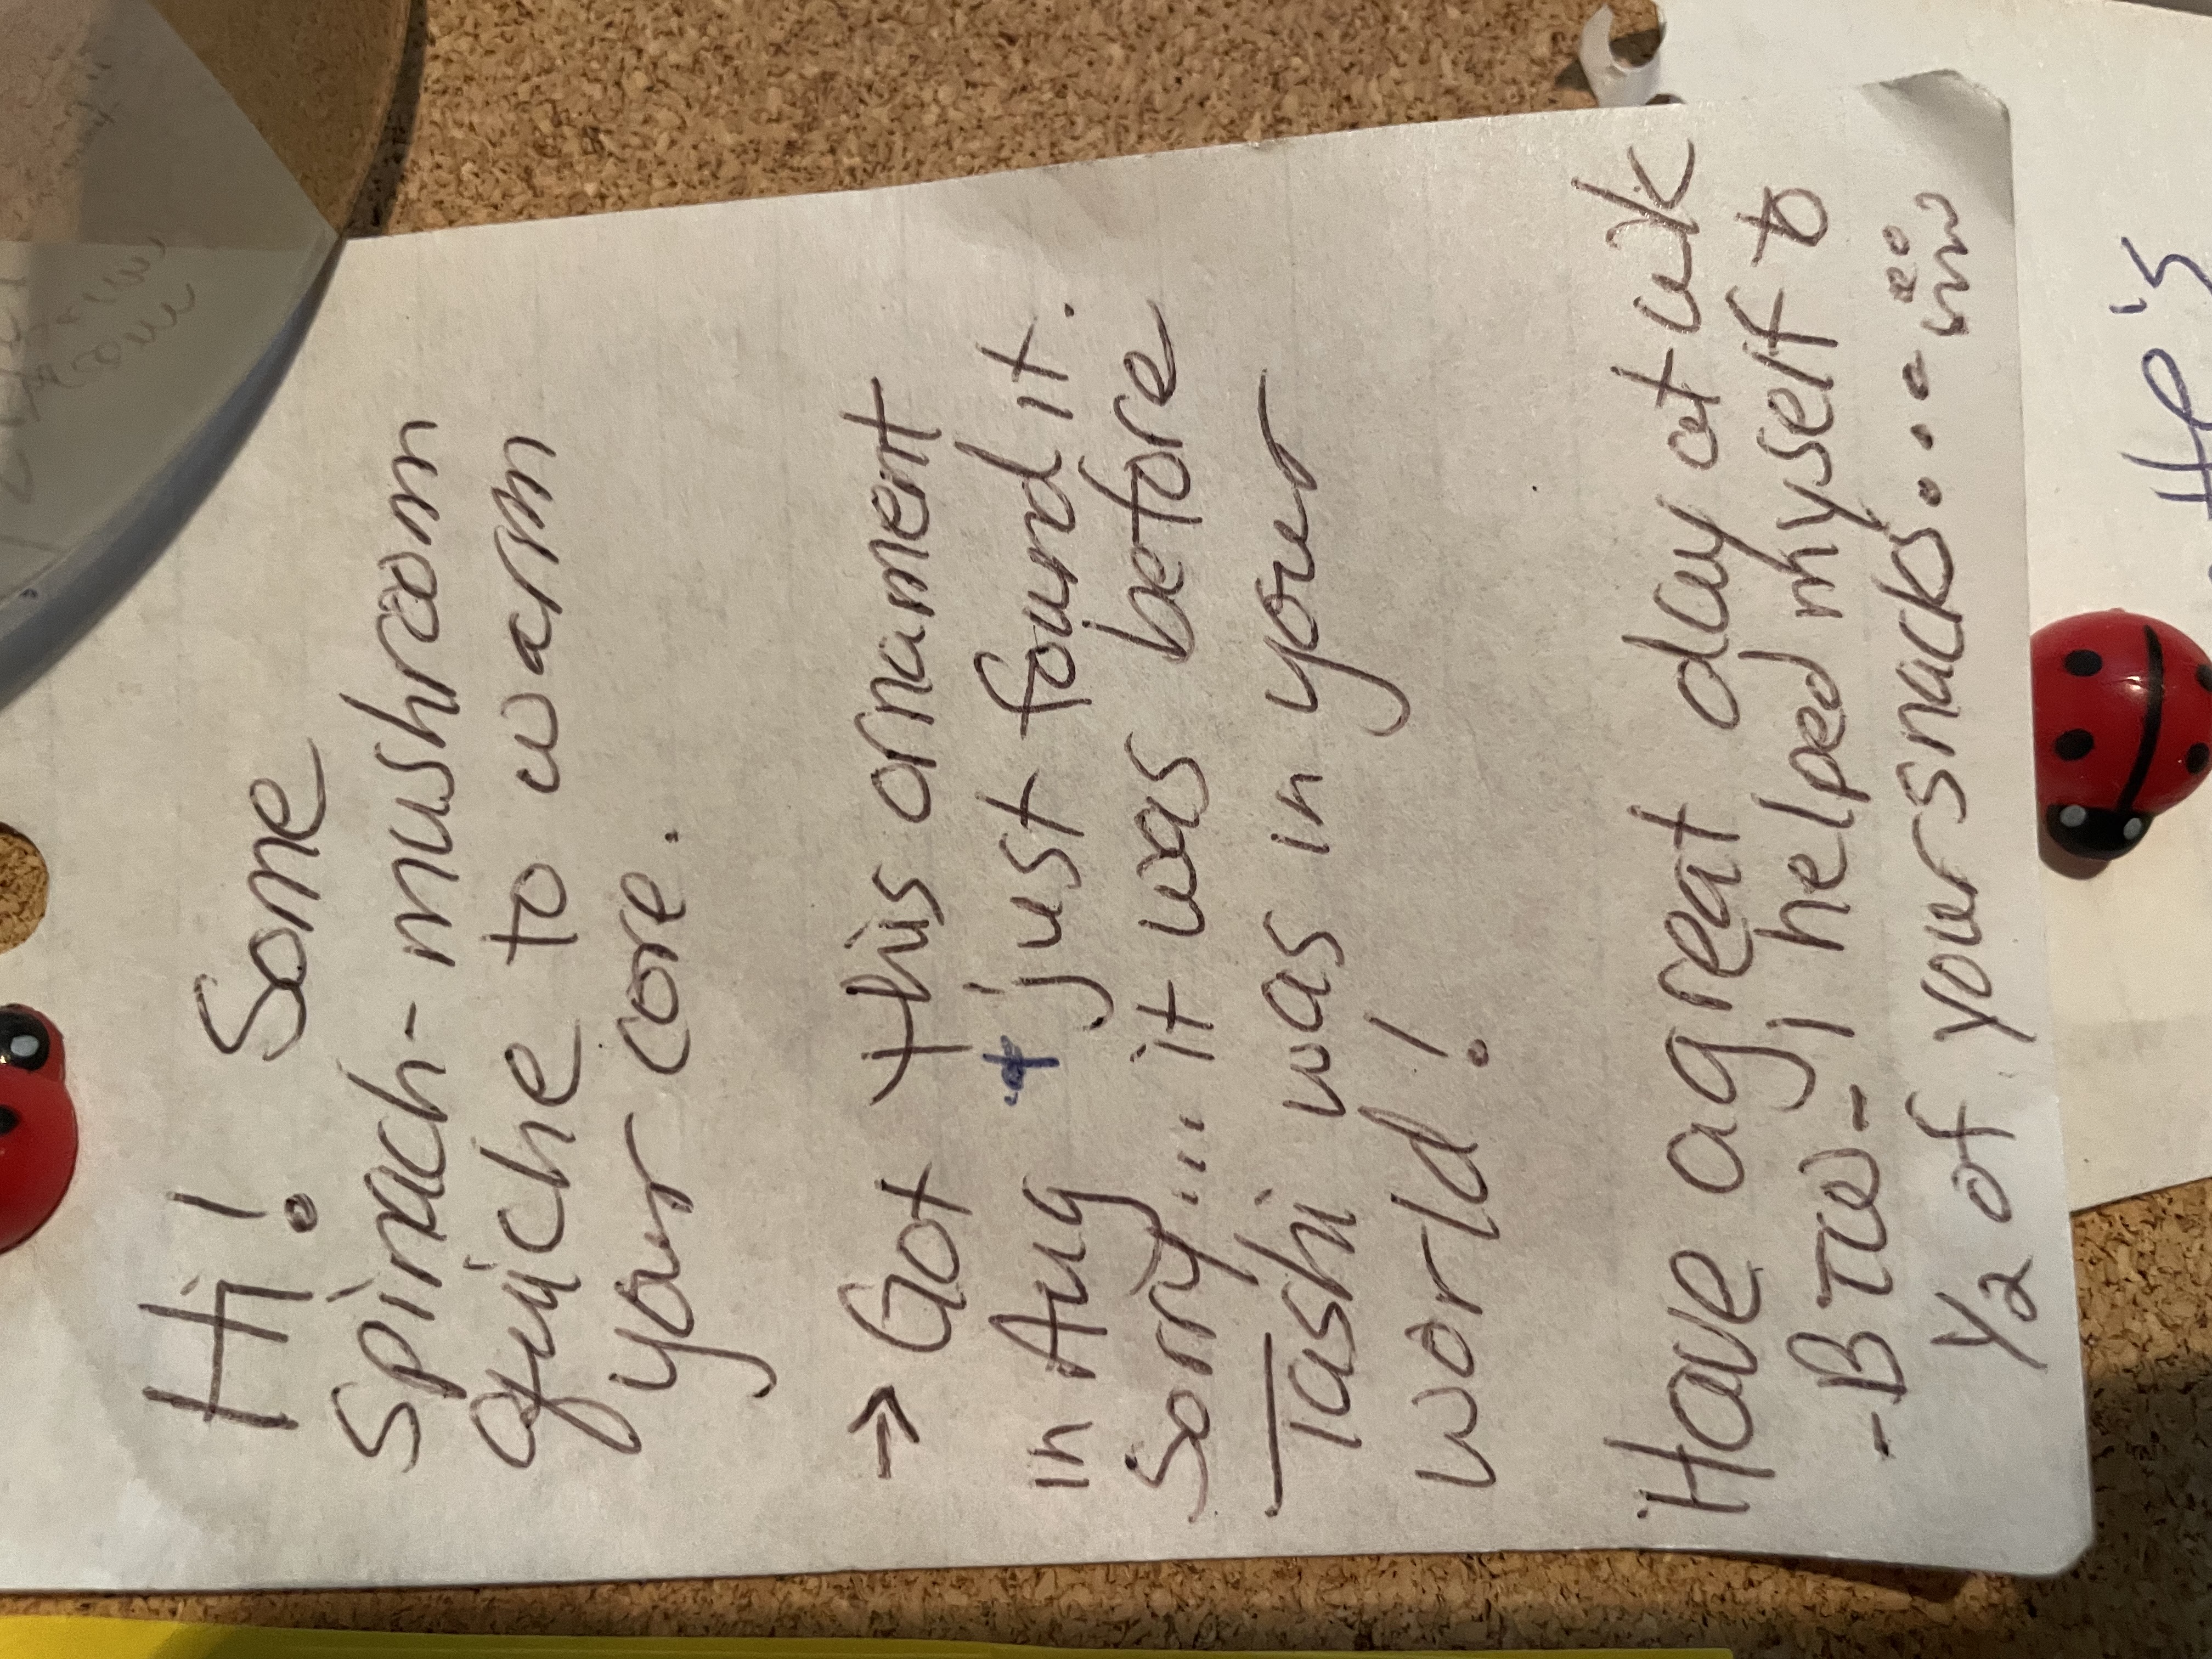 Hi! Some
spinach-mushroom
quiche to warm
your core.
→ Got this ornament
in Aug + just found it.
Sorry.... it was before
Tashi was in your
world!
Have a great day at wk
-BTW- I helped myself to
1/2 of your snacks....
He's